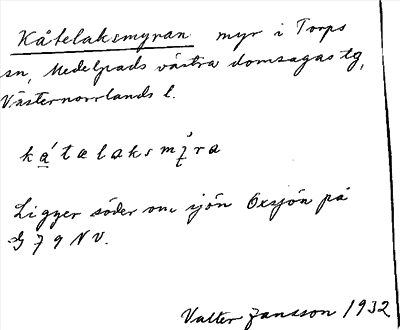 Kåtelaksmyran myr i Torps
sn, Medelpads västra domsagas tg,
Västernorrlands l.
kátelaksmyra
Ligger söder om sjön Oxsjön på
G 79 NV.
Valter Jansson 1932